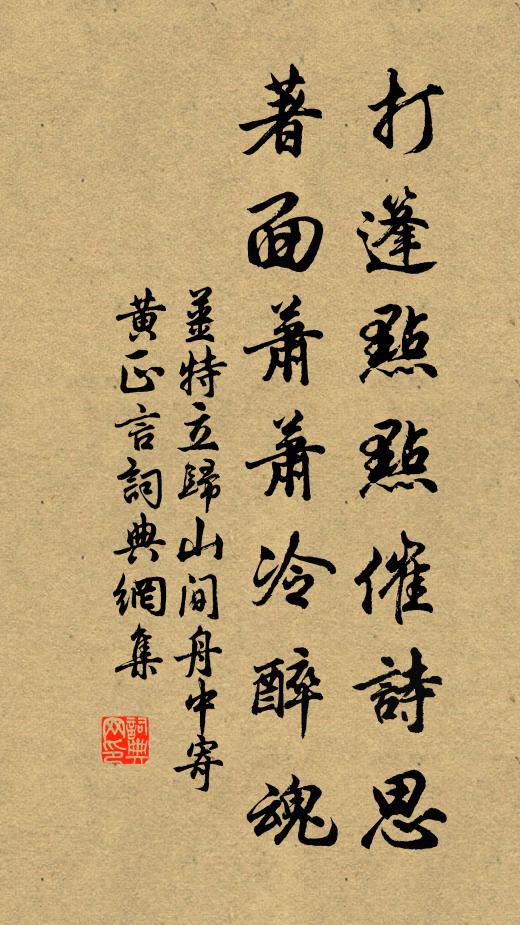 打篷點點催詩思
著面蕭蕭冷醉魂
薑特立歸山間舟中寄
黃正言詞典網集
詞典網印